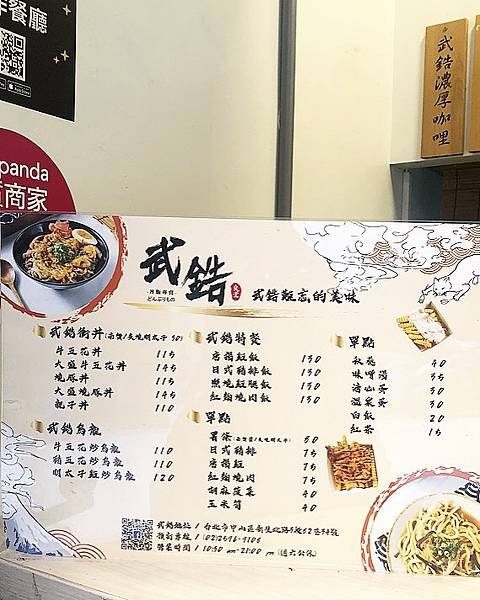 作餐廳
panda
商家
武鋯濃厚咖哩
武鋯
丼飯專賣
どんぶりもの
武鋯難忘的美味
武鋯街丼
牛五花丼 115
大盛牛五花丼 145
燒豚丼 115
大盛燒豚丼 145
親子丼 110
武鋯烏龍
牛五花炒烏龍 110
豬五花炒烏龍 110
明太子飯炒烏龍 120
武鋯特餐
唐揚雞飯 130
日式豬排飯 130
照燒雞腿飯 130
紅麴燒肉飯 130
單點
薯條 50
日式豬排 75
唐揚雞 75
紅麴燒肉 75
胡麻菠菜 40
玉米筍 40
單點
秋葵 40
味噌湯 35
溏心蛋 30
溫泉蛋 30
白飯 20
紅茶 15
武鋯地址 / 台北市中山區新生北路
預訂專線 / (02)2596-9106
營業時間 / 10:30 am-21:00 pm (週六公休)